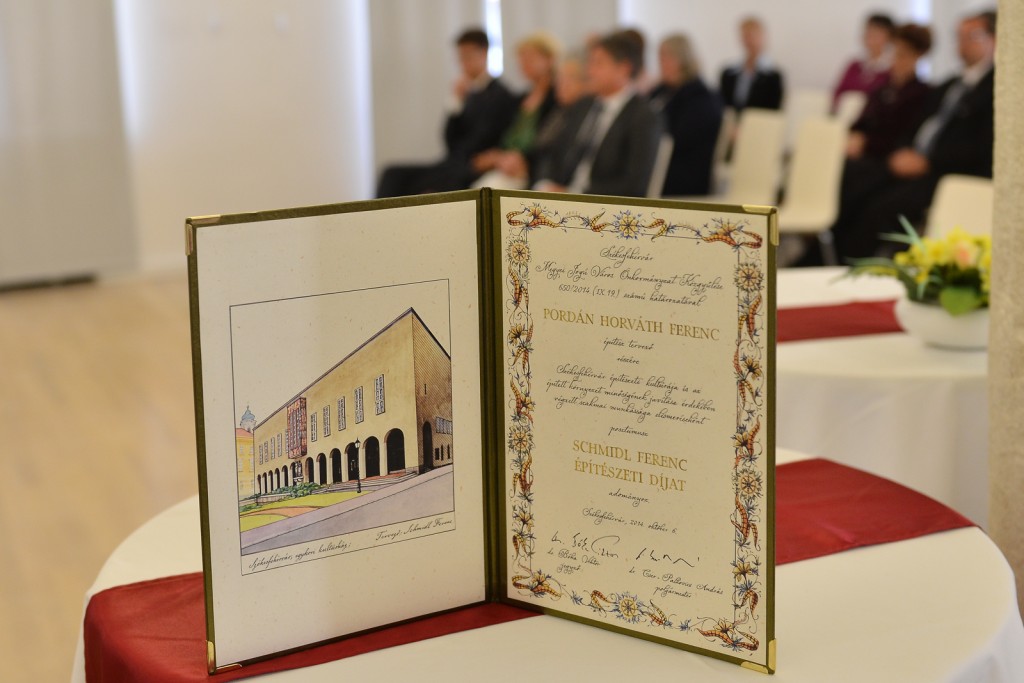 Székesfehérvár, egykori kultúrház; Tervezt: Schmidl Ferenc
Székesfehérvár
Megyei Jogú Város Önkormányzat Közgyűlése
650/2014 (IX.19) számú határozatával
PORDÁN HORVÁTH FERENC
építész tervező
részére
Székesfehérvár építészeti kultúrája és az
épített környezet minőségének javítása érdekében
végzett szakmai munkássága elismeréseként
posztumusz
SCHMIDL FERENC
ÉPÍTÉSZETI DÍJAT
adományoz
Székesfehérvár, 2014. október 6.
dr. Bóka Viktor
jegyző
dr. Cser-Palkovics András
polgármester